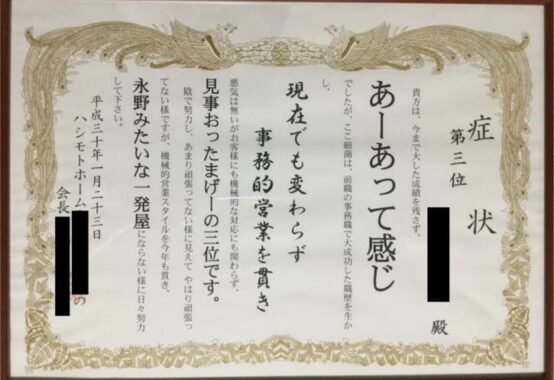 症状
第三位
殿
貴方は、今まで大した成績を残さず、
あーあって感じ
でしたが、ここ細菌は、前職の事務職で大成功した職歴を生か
し、
現在でも変わらず
事務的営業を貫き
悪気は無いがお客様にも機械的な対応にも関わらず、
見事おったまげーの三位です。
陰で努力し、あまり頑張ってない様に見えて やはり頑張っ
てない様ですが、機械的営業スタイルを今年も貫き、
永野みたいな一発屋にならない様に日々努力
して下さい。
平成三十年一月二十三日
ハシモトホーム
会長
の